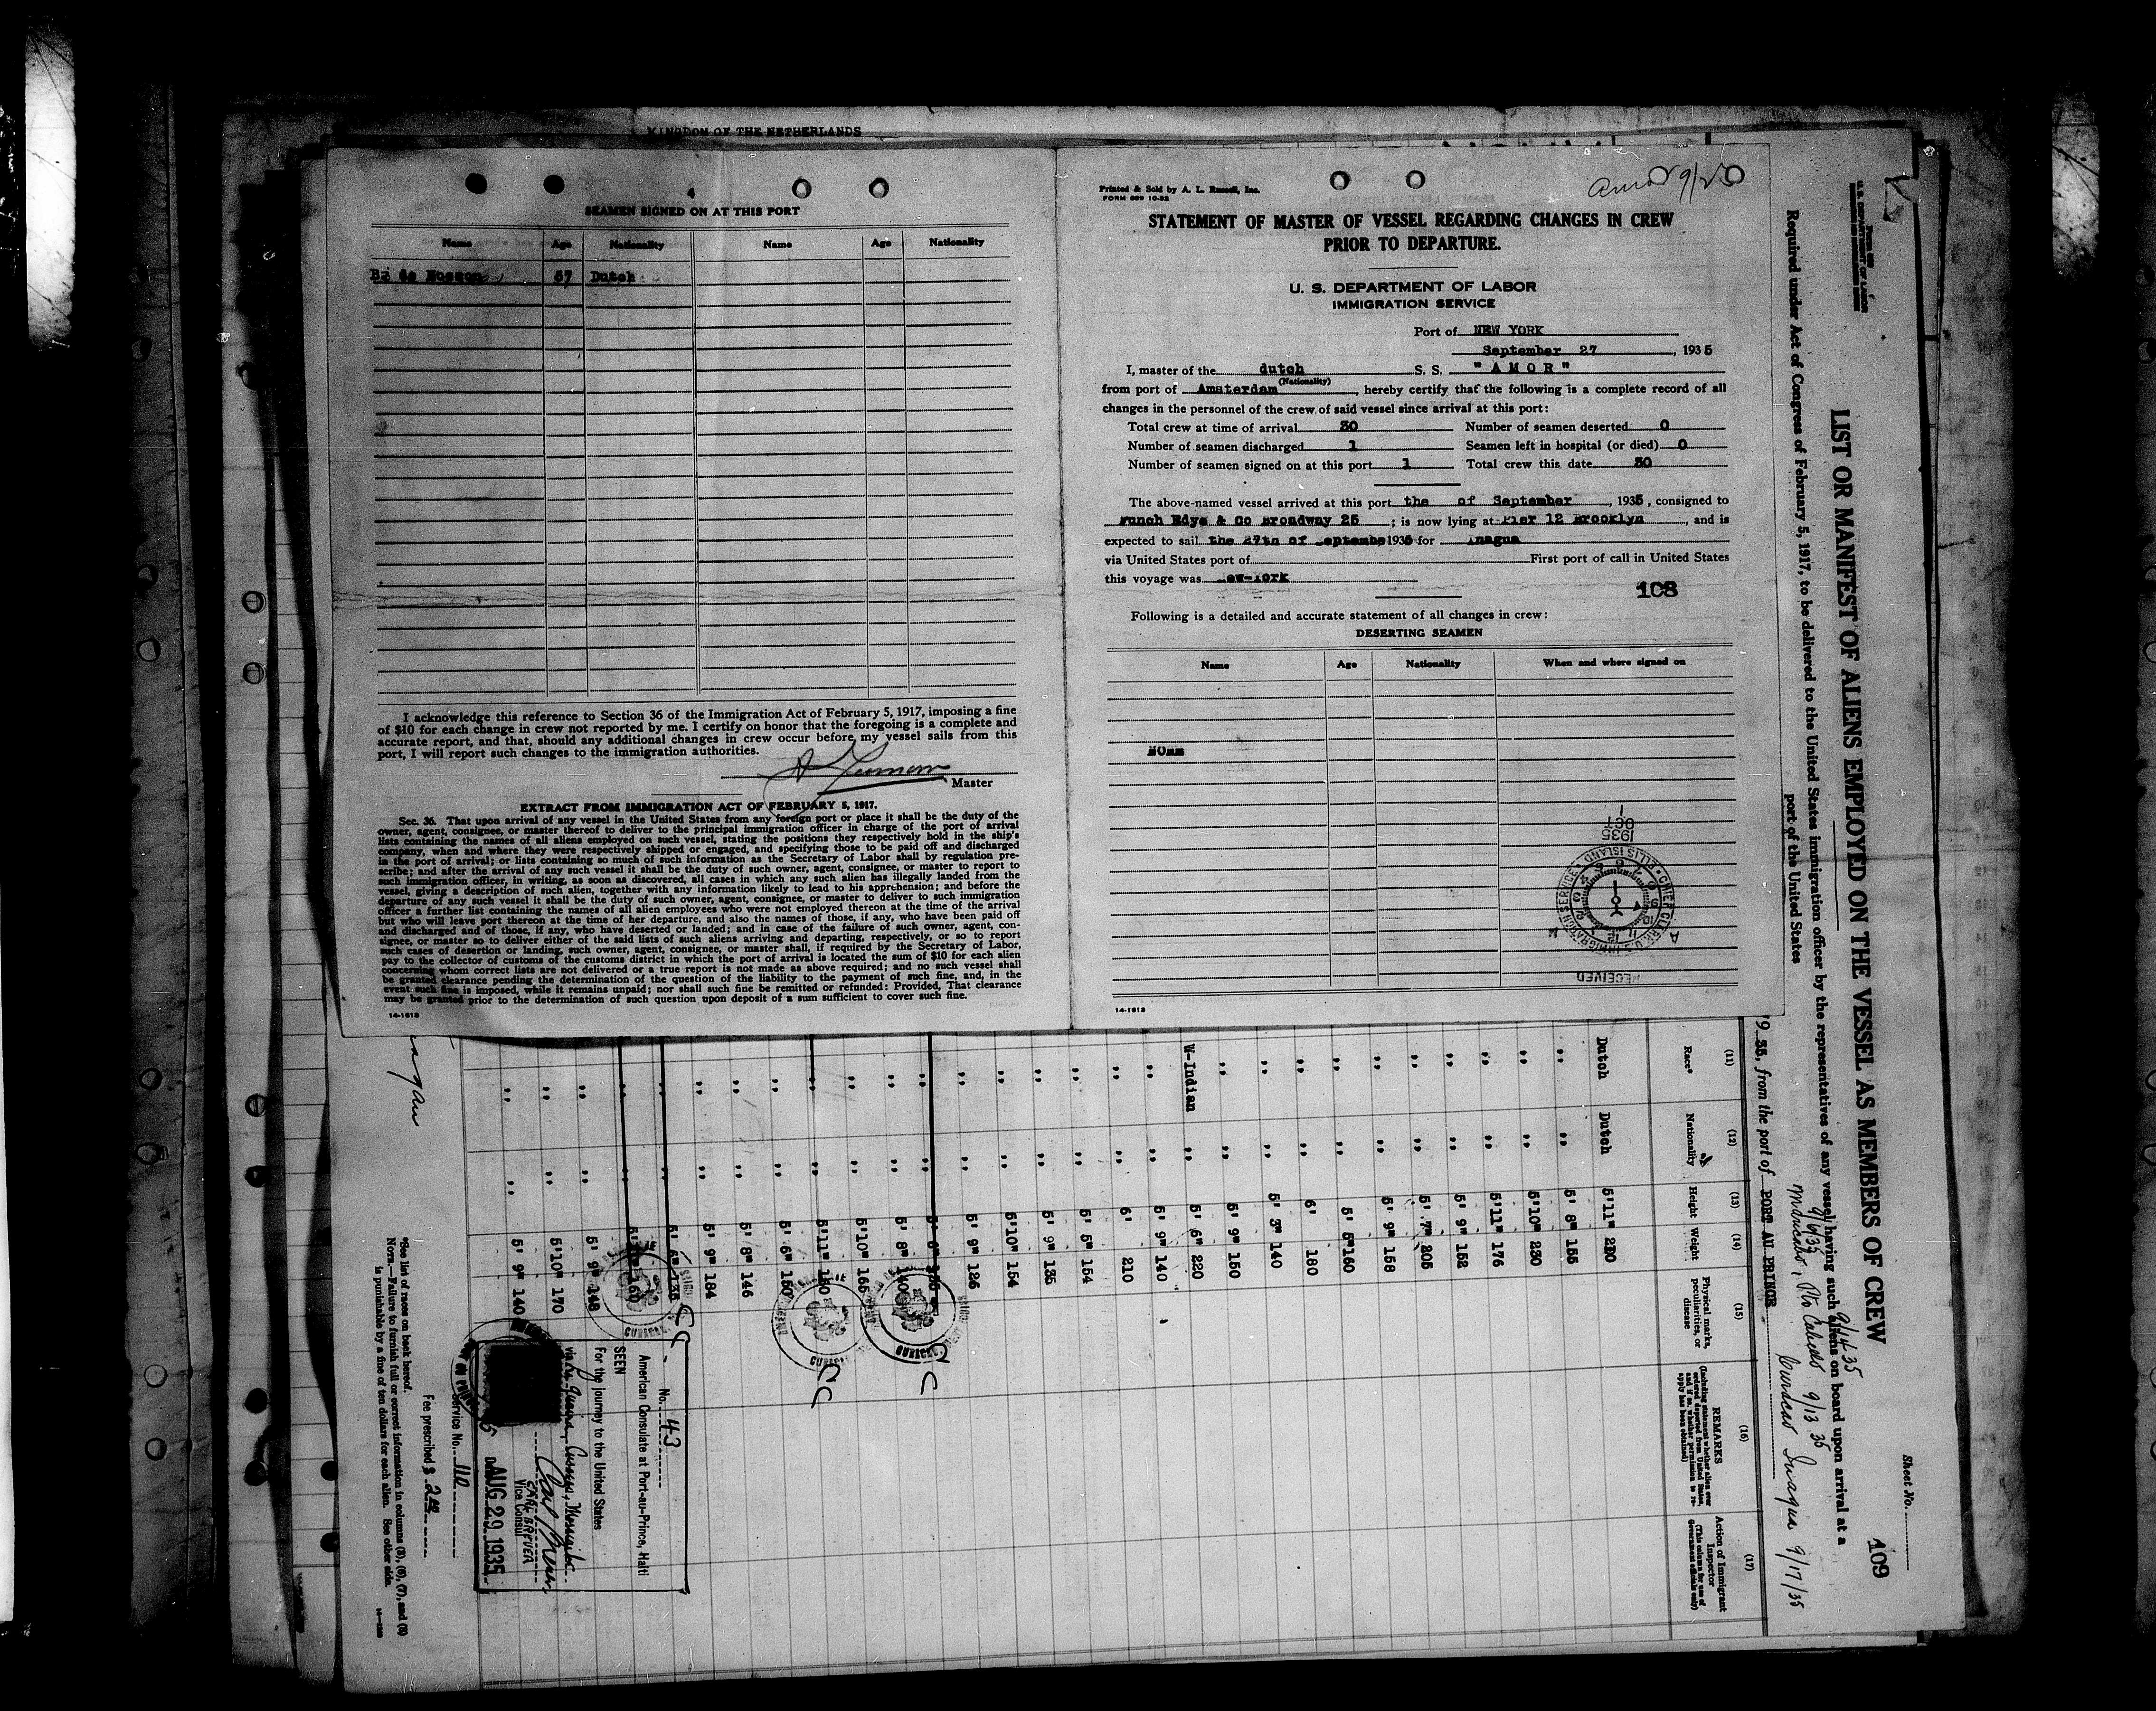 KINGDOM OF THE NETHERLANDS
4
SEAMEN SIGNED ON AT THIS PORT
Name Age Nationality Name Age Nationality
de 57 Dutch
I acknowledge this reference to Section 36 of the Immigration Act of February 5, 1917, imposing a fine
of $10 for each change in crew not reported by me. I certify on honor that the foregoing is a complete and
accurate report, and that, should any additional changes in crew occur before my vessel sails from this
port, I will report such changes to the immigration authorities.
Master
EXTRACT FROM IMMIGRATION ACT OF FEBRUARY 5, 1917.
Sec. 36. That upon arrival of any vessel in the United States from any foreign port or place it shall be the duty of the
owner, agent, consignee, or master thereof to deliver to the principal immigration officer in charge of the port of arrival
lists containing the names of all aliens employed on such vessel, stating the positions they respectively hold in the ship's
company, when and where they were respectively shipped or engaged, and specifying those to be paid off and discharged
in the port of arrival; or lists containing so much of such information as the Secretary of Labor shall by regulation pre-
scribe; and after the arrival of any such vessel it shall be the duty of such owner, agent, consignee, or master to report to
such immigration officer, in writing, as soon as discovered, all cases in which any such alien has illegally landed from the
vessel, giving a description of such alien, together with any information likely to lead to his apprehension; and before the
departure of any such vessel it shall be the duty of such owner, agent, consignee, or master to deliver to such immigration
officer a further list containing the names of all alien employees who were not employed thereon at the time of the arrival
but who will leave port thereon at the time of her departure, and also the names of those, if any, who have been paid off
and discharged and of those, if any, who have deserted or landed; and in case of the failure of such owner, agent, con-
signee, or master so to deliver either of the said lists of such aliens arriving and departing, respectively, or so to report
such cases of desertion or landing, such owner, agent, consignee, or master shall, if required by the Secretary of Labor,
pay to the collector of customs of the customs district in which the port of arrival is located the sum of $10 for each alien
concerning whom correct lists are not delivered or a true report is not made as above required; and no such vessel shall
be granted clearance pending the determination of the question of the liability to the payment of such fine, and, in the
event such fine is imposed, while it remains unpaid; nor shall such fine be remitted or refunded: Provided, That clearance
may be granted prior to the determination of such question upon deposit of a sum sufficient to cover such fine.
14-1613
Printed & Sold by A. L. Russell, Inc.
FORM 689 10-32
STATEMENT OF MASTER OF VESSEL REGARDING CHANGES IN CREW
PRIOR TO DEPARTURE.
U. S. DEPARTMENT OF LABOR
IMMIGRATION SERVICE
Port of NEW YORK
September 27, 1935
I, master of the dutch S. S. "AMOR"
(Nationality)
from port of Amsterdam, hereby certify that the following is a complete record of all
changes in the personnel of the crew of said vessel since arrival at this port:
Total crew at time of arrival 30 Number of seamen deserted 0
Number of seamen discharged 1 Seamen left in hospital (or died) 0
Number of seamen signed on at this port 1 Total crew this date 30
The above-named vessel arrived at this port the of September, 1935, consigned to
Funch Edye & Co Broadway 25; is now lying at Pier 12 Brooklyn, and is
expected to sail the 27th of Septembe 1935 for Inagua
via United States port of First port of call in United States
this voyage was New-York
108
Following is a detailed and accurate statement of all changes in crew:
DESERTING SEAMEN
Name Age Nationality When and where signed on
RECEIVED
CHIEF CLERK U.S. IMMIGRATION SERVICE ELLIS ISLAND
1935
OCT 1
14-1613
Sheet No.
109
U. S. DEPARTMENT OF LABOR
LIST OR MANIFEST OF ALIENS EMPLOYED ON THE VESSEL AS MEMBERS OF CREW
Required under Act of Congress of February 5, 1917, to be delivered to the United States immigration officer by the representatives of any vessel having such aliens on board upon arrival at a
port of the United States
19 35, from the port of PORT AU PRINCE
9/14 35
9/13 35
Inagua 9/17/35
(11) (12) (13) (14) (15) (16) (17)
Race* Nationality Height Weight Physical marks, peculiarities, or disease REMARKS Action of Immigrant Inspector
(Including statement whether alien ever ordered deported from United States, and if so, whether permission to re-apply has been obtained)
(This column for use of Government officials only)
Dutch Dutch 5'11" 220
" " 5' 8" 155
" " 5'10" 230
" " 5'11" 176
" " 5' 9" 152
" " 5' 7" 205
" " 5' 9" 158
" " 5' 5" 160
" " 6' 180
" " 5' 3" 140
" " 5' 9" 150
W-Indian " 5' 6" 220
" " 5' 9" 140
" " 6' 210
" " 5' 5" 154
" " 5' 9" 135
" " 5'10" 154
" " 5' 9" 126
" " 5' 8" 140
" " 5'10" 165
" " 5'11"
" " 5' 6" 150
" " 5' 8" 146
" " 5' 9" 184
" " 5' 6" 135
" " 160
" " 5' 9" 148
" " 5'10" 170
" " 5' 9" 140
No. 43
American Consulate at Port-au-Prince, Haiti
SEEN
For the journey to the United States
via
CARL BREUER
Vice Consul
AUG 29 1935
Service No. 110
Fee prescribed $ 2.00
*See list of races on back hereof.
NOTE.—Failure to furnish full or correct information in columns (5), (6), (7), and (8)
is punishable by a fine of ten dollars for each alien. See other side.